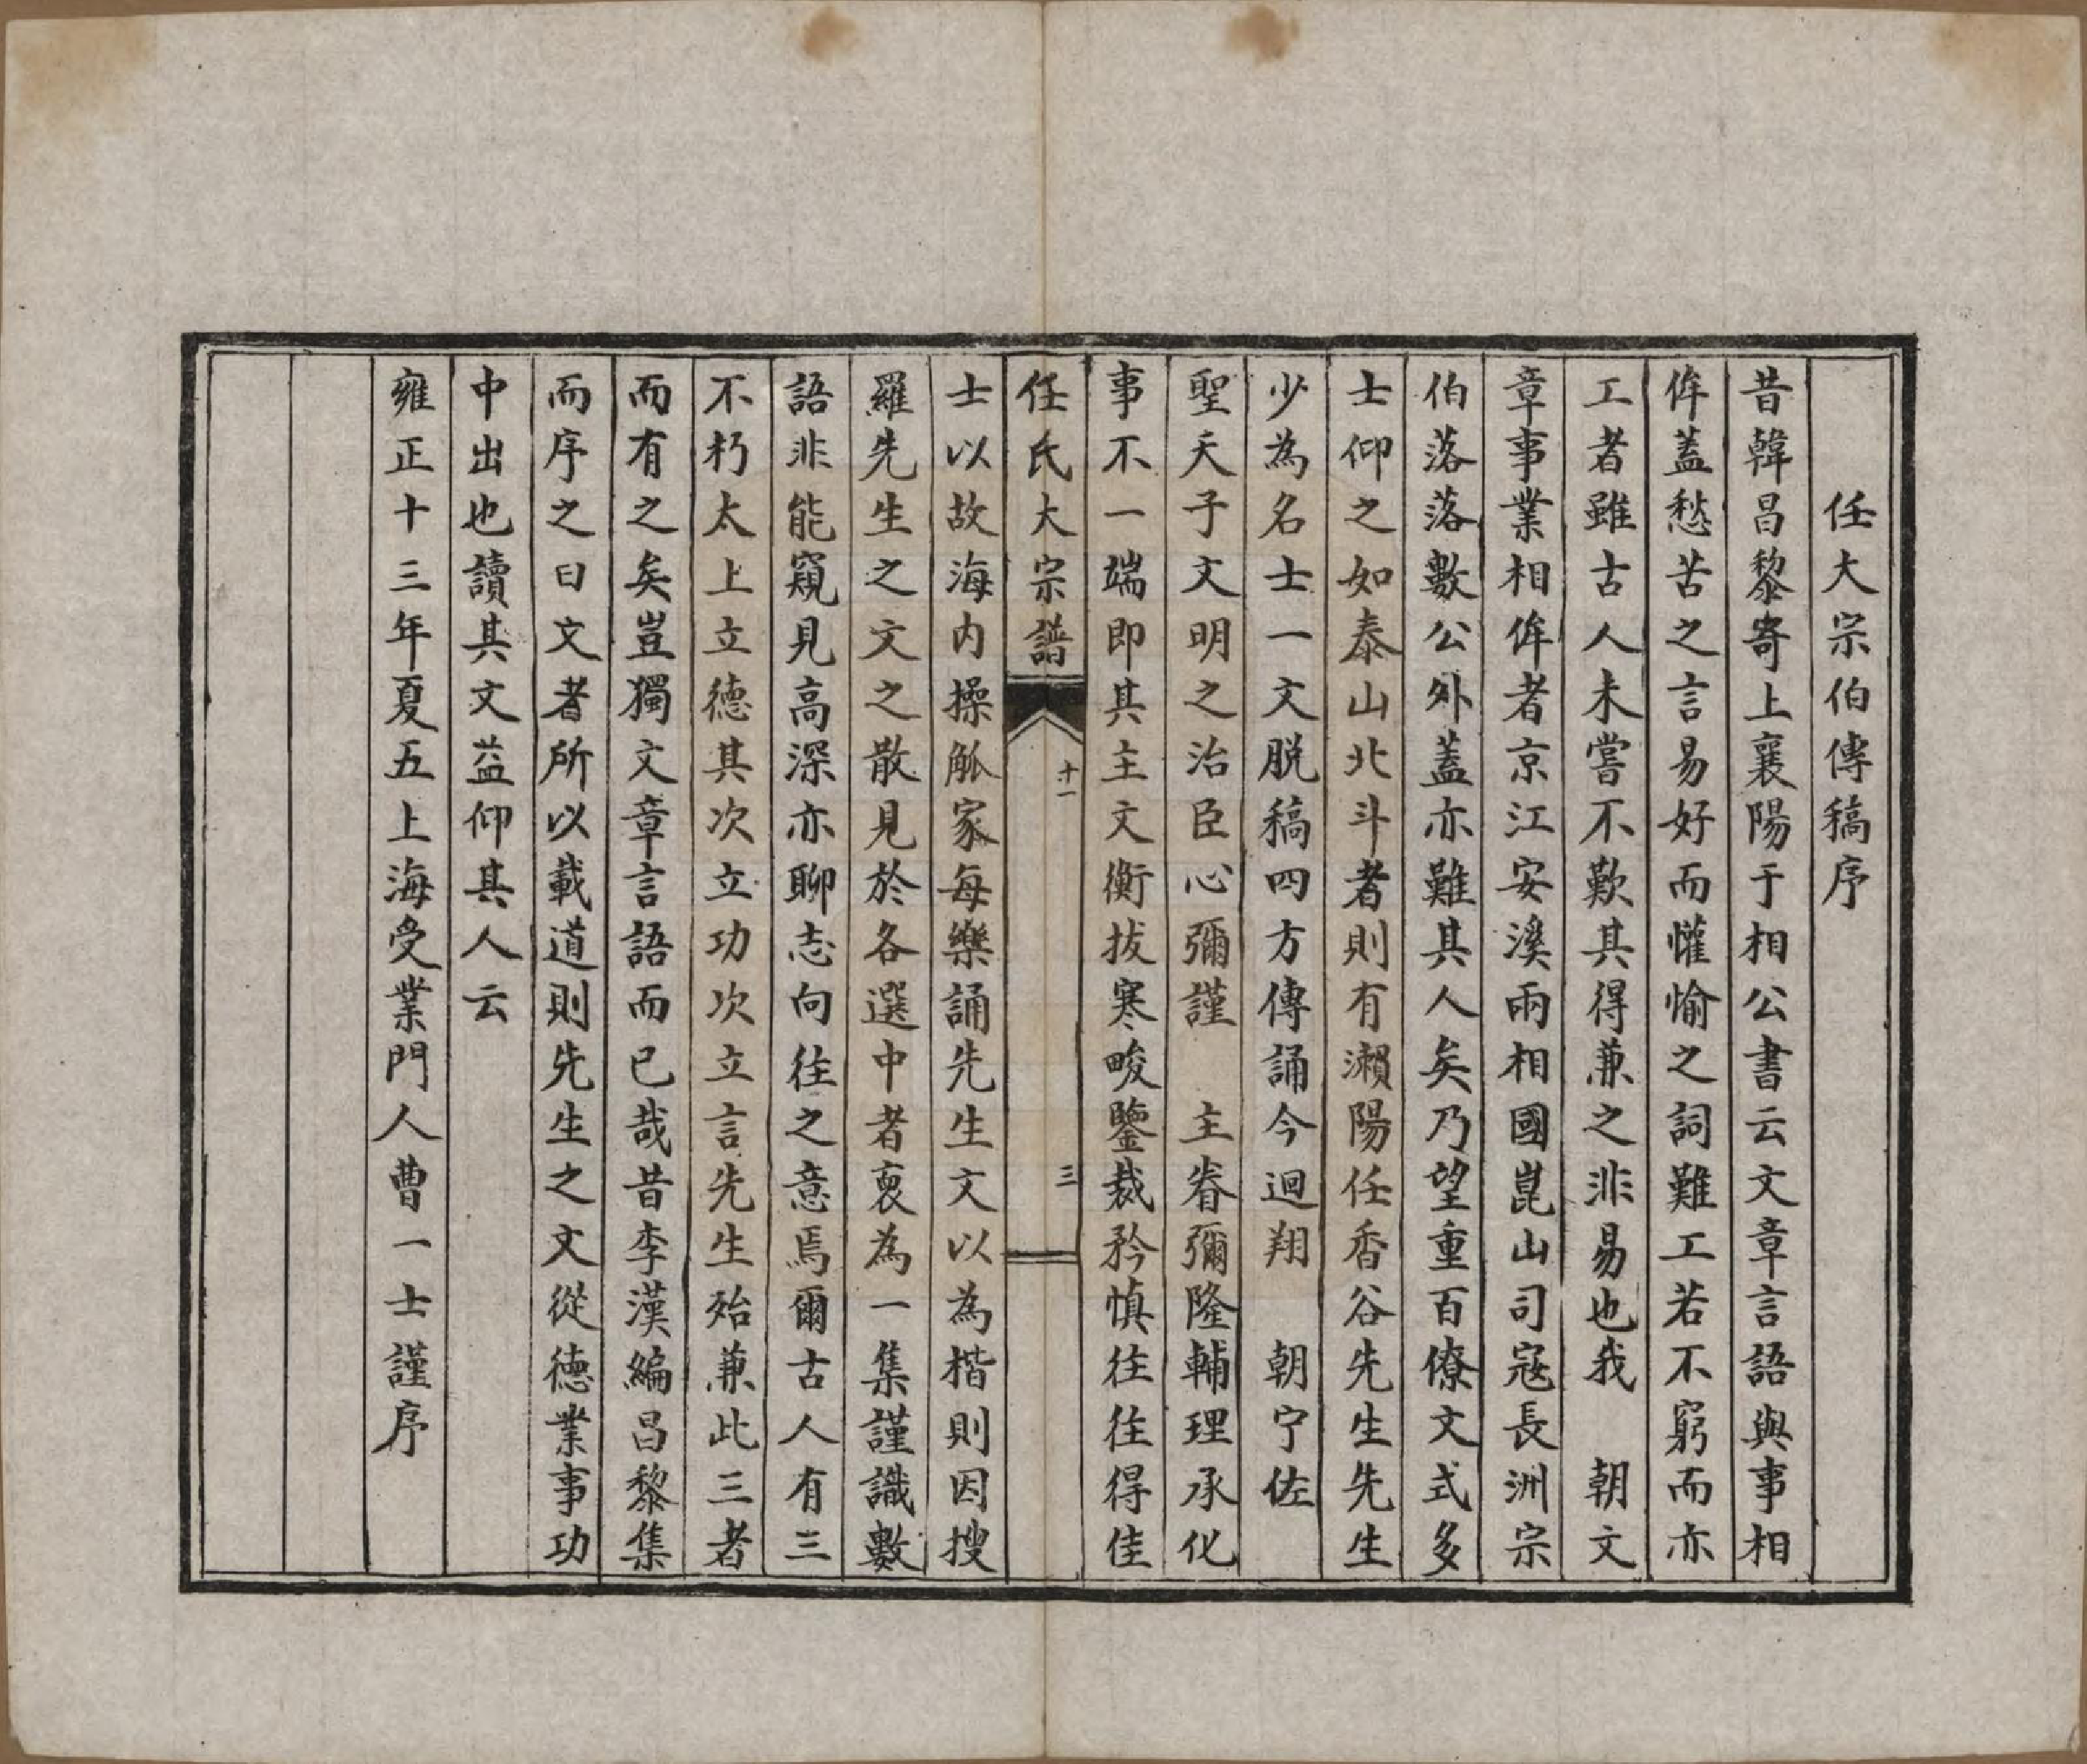 任大宗伯傳稿序
昔韓昌黎寄上襄陽于相公書云文章言語與事相
侔蓋愁苦之言易好而懽愉之詞難工若不窮而亦
工者雖古人未嘗不歎其得兼之非易也我　朝文
章事業相侔者京江安溪兩相國崑山司寇長洲宗
伯落落數公外蓋亦難其人矣乃望重百僚文式多
士仰之如泰山北斗者則有瀨陽任香谷先生先生
少為名士一文脱稿四方傳誦今迴翔　朝宁佐
聖天子文明之治臣心彌謹　主眷彌隆輔理承化
事不一端即其主文衡拔寒畯鑒裁矜慎往往得佳
任氏大宗譜　十一　三
士以故海内操觚家每樂誦先生文以為楷則因搜
羅先生之文之散見於各選中者裒為一集謹識數
語非能窺見高深亦聊志向往之意焉爾古人有三
不朽太上立德其次立功次立言先生殆兼此三者
而有之矣豈獨文章言語而已哉昔李漢編昌黎集
而序之曰文者所以載道則先生之文從德業事功
中出也讀其文益仰其人云
雍正十三年夏五上海受業門人曹一士謹序